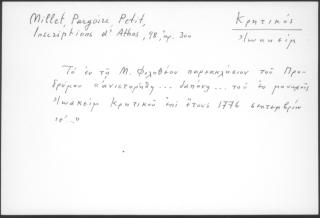 Millet, Pargoire, Petit,
Inscriptions d'Athos, 98, ἀρ. 300
Κρητικός
Ἰωακείμ
Τὸ ἐν τῇ Μ. Φιλοθέου παρεκκλήσιον τοῦ Προ-
δρόμου "ἀνιστορήθη... δαπάνῃ... τοῦ ἐν μοναχοῖς
Ἰωακεὶμ Κρητικοῦ ἐπὶ ἔτους 1776 σεπτεμβρίου